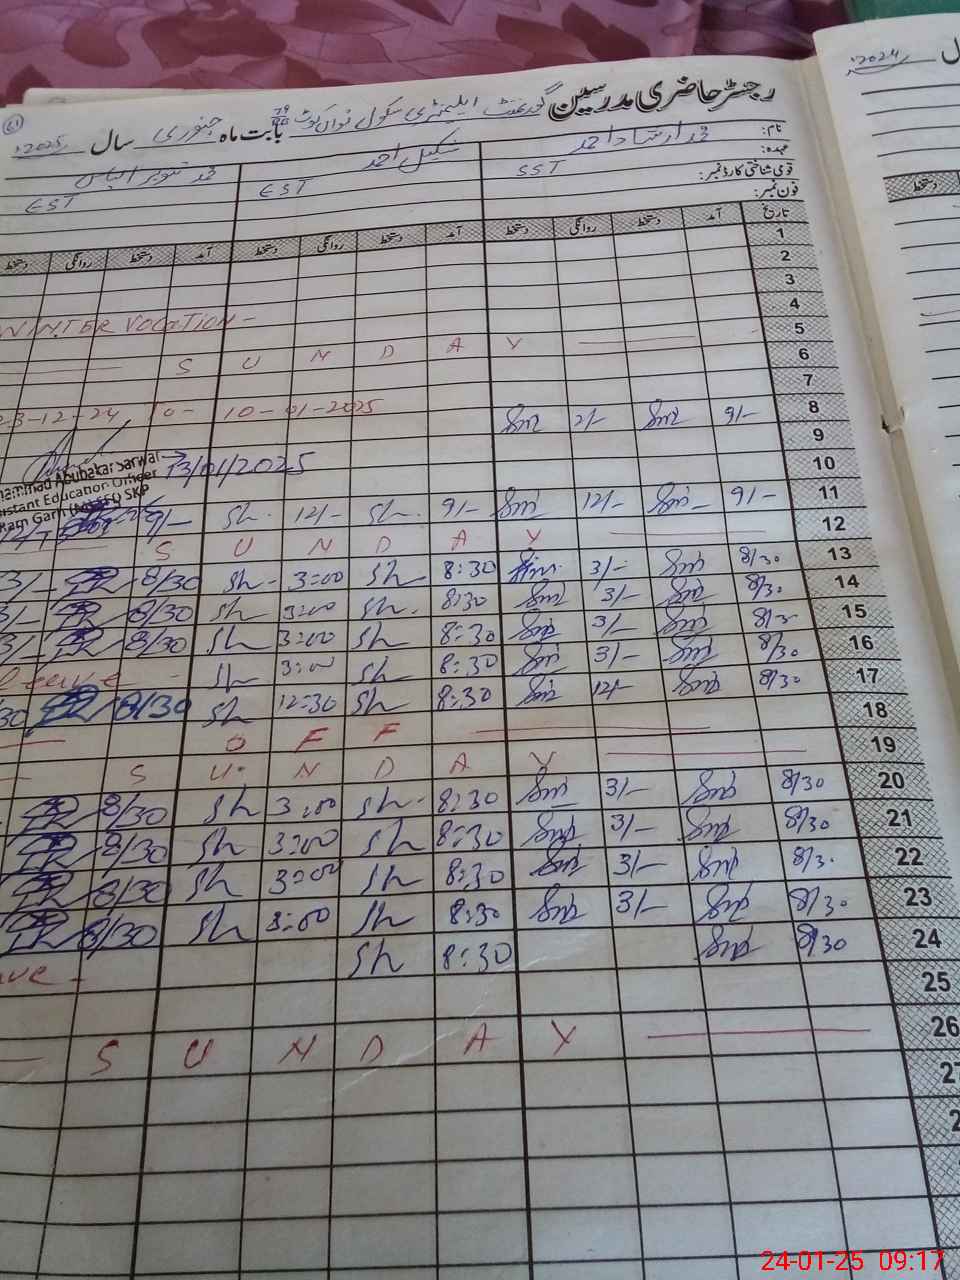 رجسٹر حاضری مدرسین گورنمنٹ ایلیمنٹری سکول نواں کوٹ بابت ماہ جنوری سال 2025ء
61
2024ء
نام: محمد ارشاد احمد شکیل احمد محمد تنویر الیاس
عہدہ: SST EST EST
قومی شناختی کارڈ نمبر:
فون نمبر:
تاریخ آمد دستخط روانگی دستخط آمد دستخط روانگی دستخط آمد دستخط روانگی دستخط
1
2
3
4 WINTER VOCATION -
5 S U N D A Y
6
7
8 23-12-24 To - 10-01-2025 2/- 9/-
9
10 13/01/2025
Muhammad Abubakar Sarwar
Assistant Education Officer
Ram Garh (M-EE) SKP
11 9/- Sh. 12/- Sh. 9/- 12/- 9/-
12 S U N D A Y
13 3/- 8/30 Sh - 3:00 Sh 8:30 3/- 8/30
14 3/- 8/30 Sh 3:00 Sh. 8:30 3/- 8/30
15 3/- 8/30 Sh 3:00 Sh 8:30 3/- 8/30
16 Sh 3:00 Sh 8:30 3/- 8/30
17 8/30 Sh 12:30 Sh 8:30 12/- 8/30
18 O F F
19 S U N D A Y
20 8/30 Sh 3:00 Sh - 8:30 3/- 8/30
21 8/30 Sh 3:00 Sh 8:30 3/- 8/30
22 8/30 Sh 3:00 Sh 8:30 3/- 8/30
23 8/30 Sh 3:00 Sh 8:30 3/- 8/30
24 Sh 8:30 8/30
25
26 S U N D A Y
27
24-01-25 09:17